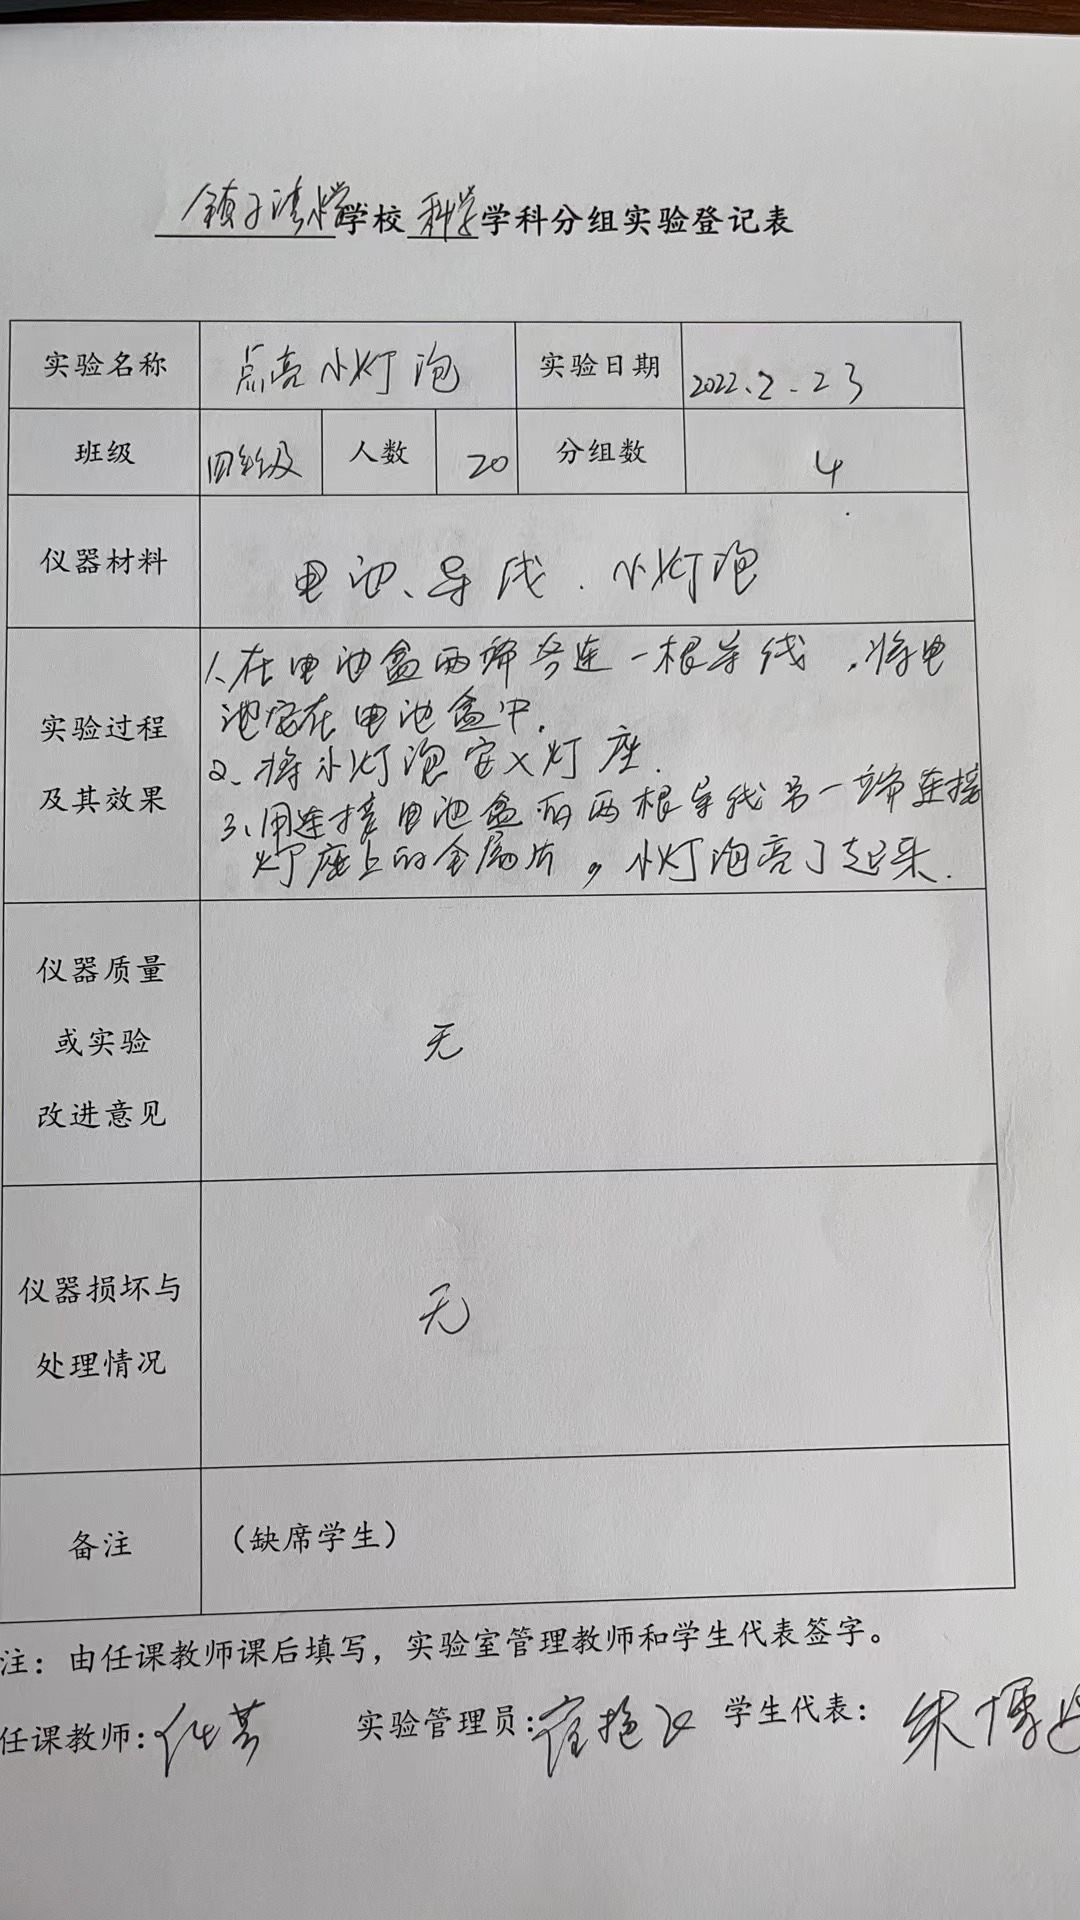 学校 科学 学科分组实验登记表
实验名称 点亮小灯泡 实验日期 2022.2.23
班级 四年级 人数 20 分组数 4
仪器材料 电池、导线.小灯泡
实验过程
及其效果
1.在电池盒两端各连一根导线,将电
池安在电池盒中.
2、将小灯泡安入灯座.
3、用连接电池盒的两根导线另一端连接
灯座上的金属片,小灯泡亮了起来.
仪器质量
或实验
改进意见
无
仪器损坏与
处理情况
无
备注 (缺席学生)
注:由任课教师课后填写,实验室管理教师和学生代表签字。
任课教师: 实验管理员: 学生代表:朱博